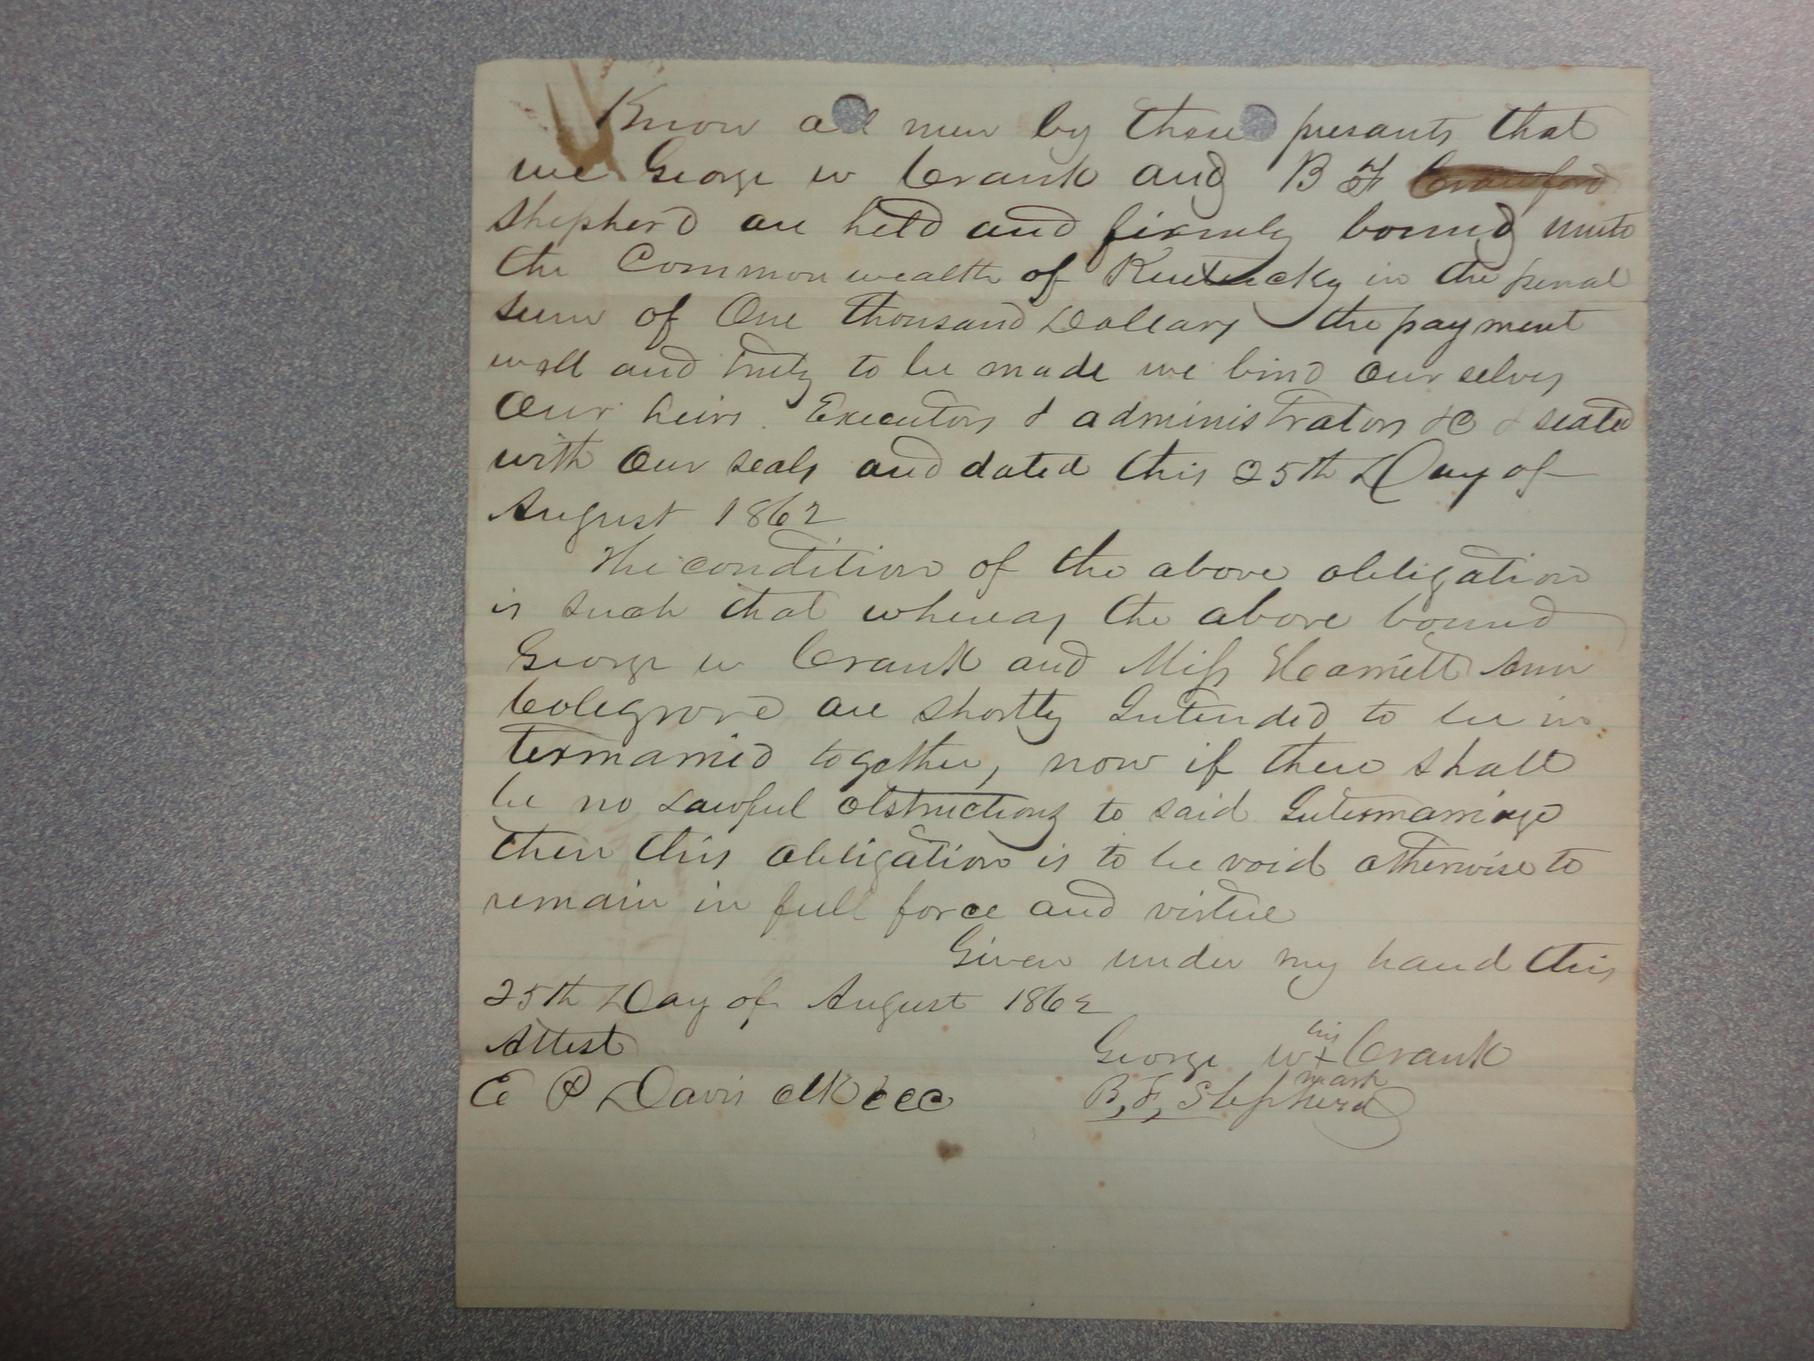 Know all men by these presants that
we George w Crank and B F Crawford
Shepherd are held and firmly bound unto
the Commonwealth of Kentucky in the penal
sum of One thousand Dollars the payment
well and truly to be made we bind our selves
Our heirs Executors & administrators &C & sealed
with Our seals and dated this 25th Day of
August 1862
The condition of the above obligation
is such that whereas the above bound
George w Crank and Miss Harriett Ann
Colegrove are shortly Intended to be in
termarried together, now if there shall
be no Lawful obstructions to said Intermarriage
then this obligation is to be void otherwise to
remain in full force and virtue
Given under my hand this
25th Day of August 1862
Attest
George W his x mark Crank
E P Davis clk
B, F, Shepherd